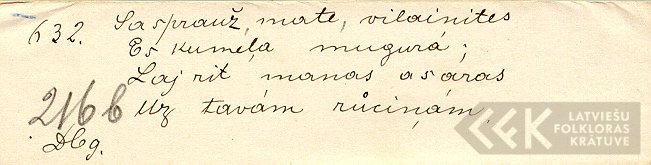 632. Sasprauž, māte, vilainītes
Es kumeļa mugurá;
Laj rit manas asaras
Uz tavám růciņám
2166
Dbg.
LATVIEŠU
FOLKLORAS
KRĀTUVE